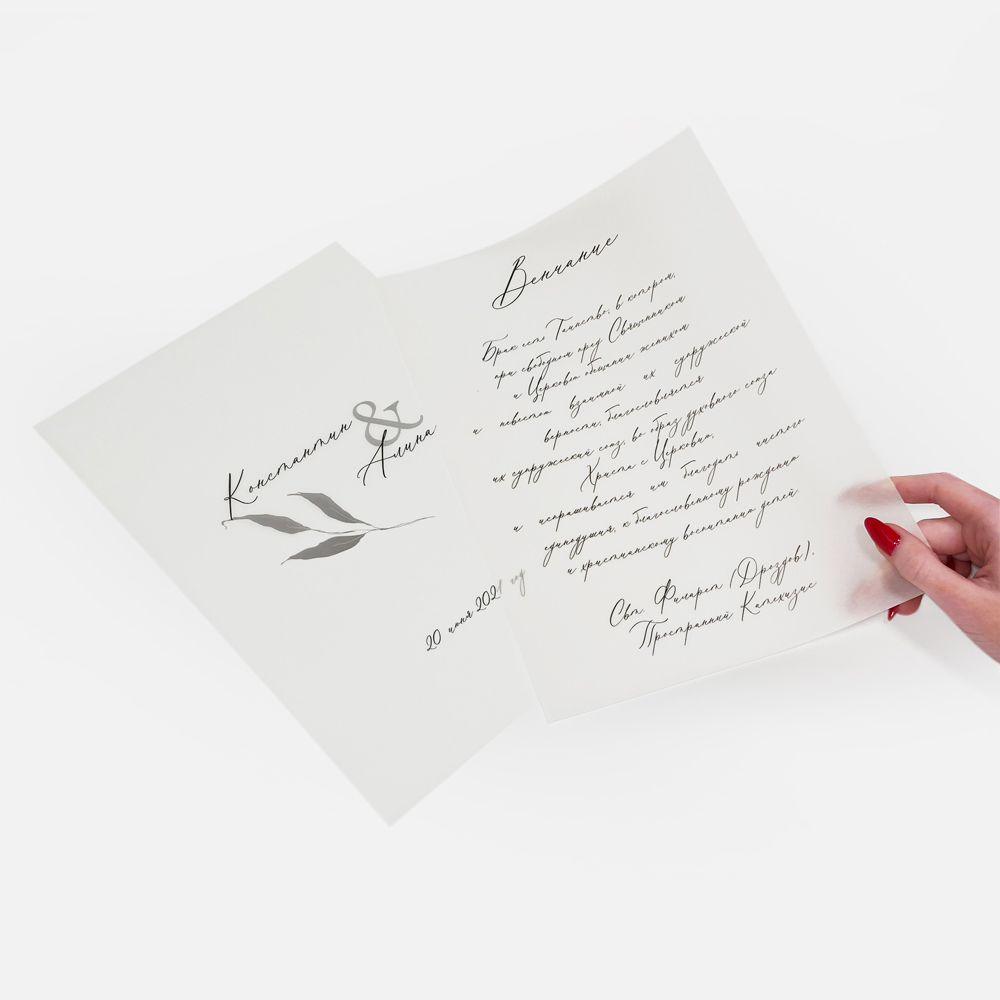 Константин
&
Алина
20 июня 2021 год
Венчание
Брак есть Таинство, в котором,
при свободном пред Священником
и Церковью обещании женихом
и невестой взаимной их супружеской
верности, благословляется
их супружеский союз, во образ духовного союза
Христа с Церковью,
и испрашивается им благодать чистого
единодушия, к благословенному рождению
и христианскому воспитанию детей.
Свт. Филарет (Дроздов).
Пространный Катехизис